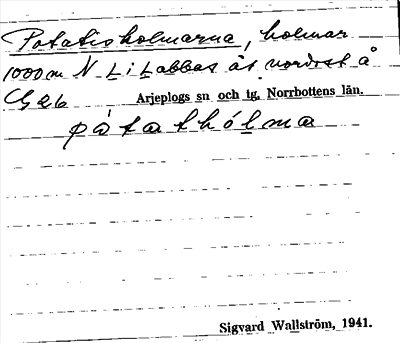 Potatisholmarna, holmar
1000 m N Li Labbas åt nordost å
G26 Arjeplogs sn och tg, Norrbottens län.
pàtathólma
Sigvard Wallström, 1941.